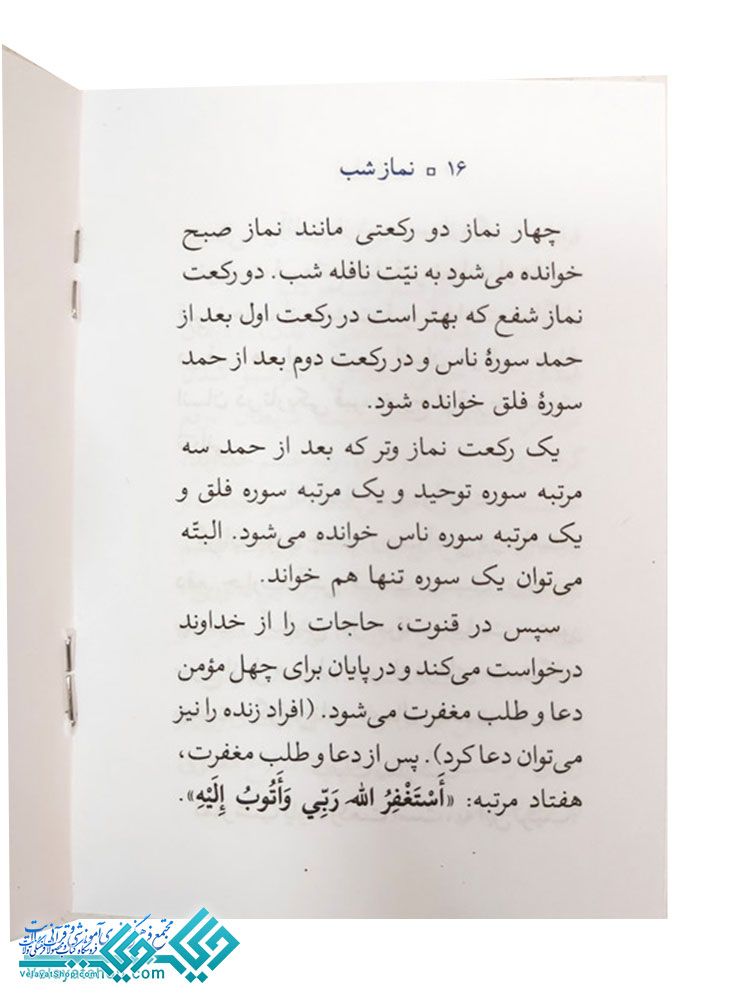 ۱۶ □ نماز شب
چهار نماز دو رکعتی مانند نماز صبح
خوانده می‌شود به نیّت نافله شب. دو رکعت
نماز شفع که بهتر است در رکعت اول بعد از
حمد سورهٔ ناس و در رکعت دوم بعد از حمد
سورهٔ فلق خوانده شود.
یک رکعت نماز وتر که بعد از حمد سه
مرتبه سوره توحید و یک مرتبه سوره فلق و
یک مرتبه سوره ناس خوانده می‌شود. البتّه
می‌توان یک سوره تنها هم خواند.
سپس در قنوت، حاجات را از خداوند
درخواست می‌کند و در پایان برای چهل مؤمن
دعا و طلب مغفرت می‌شود. (افراد زنده را نیز
می‌توان دعا کرد). پس از دعا و طلب مغفرت،
هفتاد مرتبه: «أَسْتَغْفِرُ اللهَ رَبِّي وَأَتُوبُ إِلَيْهِ».
velayatshop.com